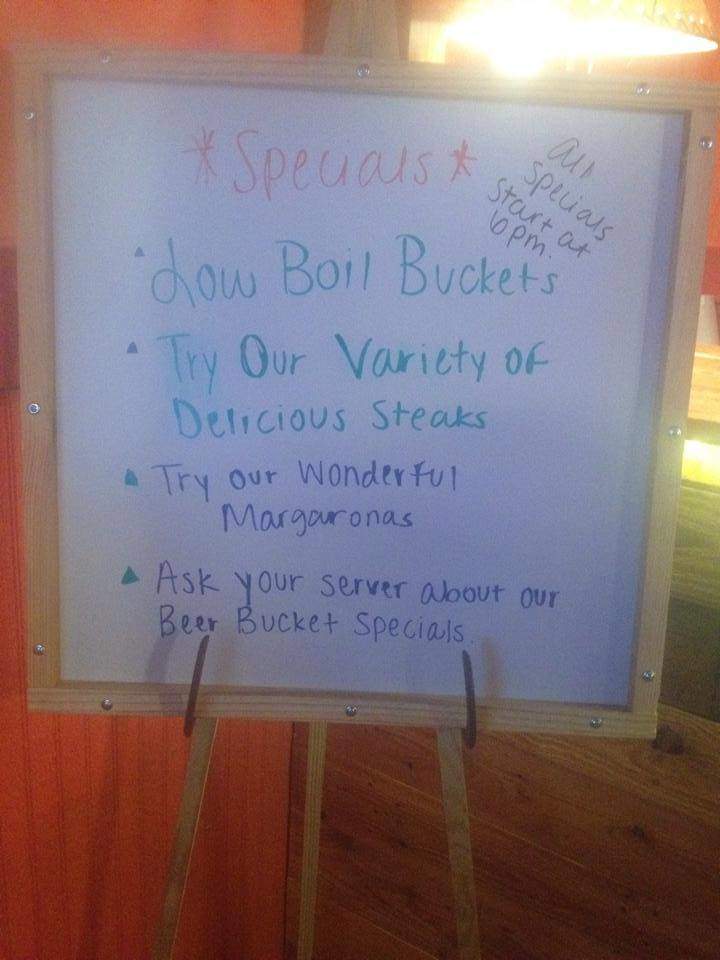 *Specials*
All
specials
start at
6pm.
Low Boil Buckets
Try Our Variety of
Delicious Steaks
Try our Wonderful
Margaronas
Ask your server about our
Beer Bucket Specials.